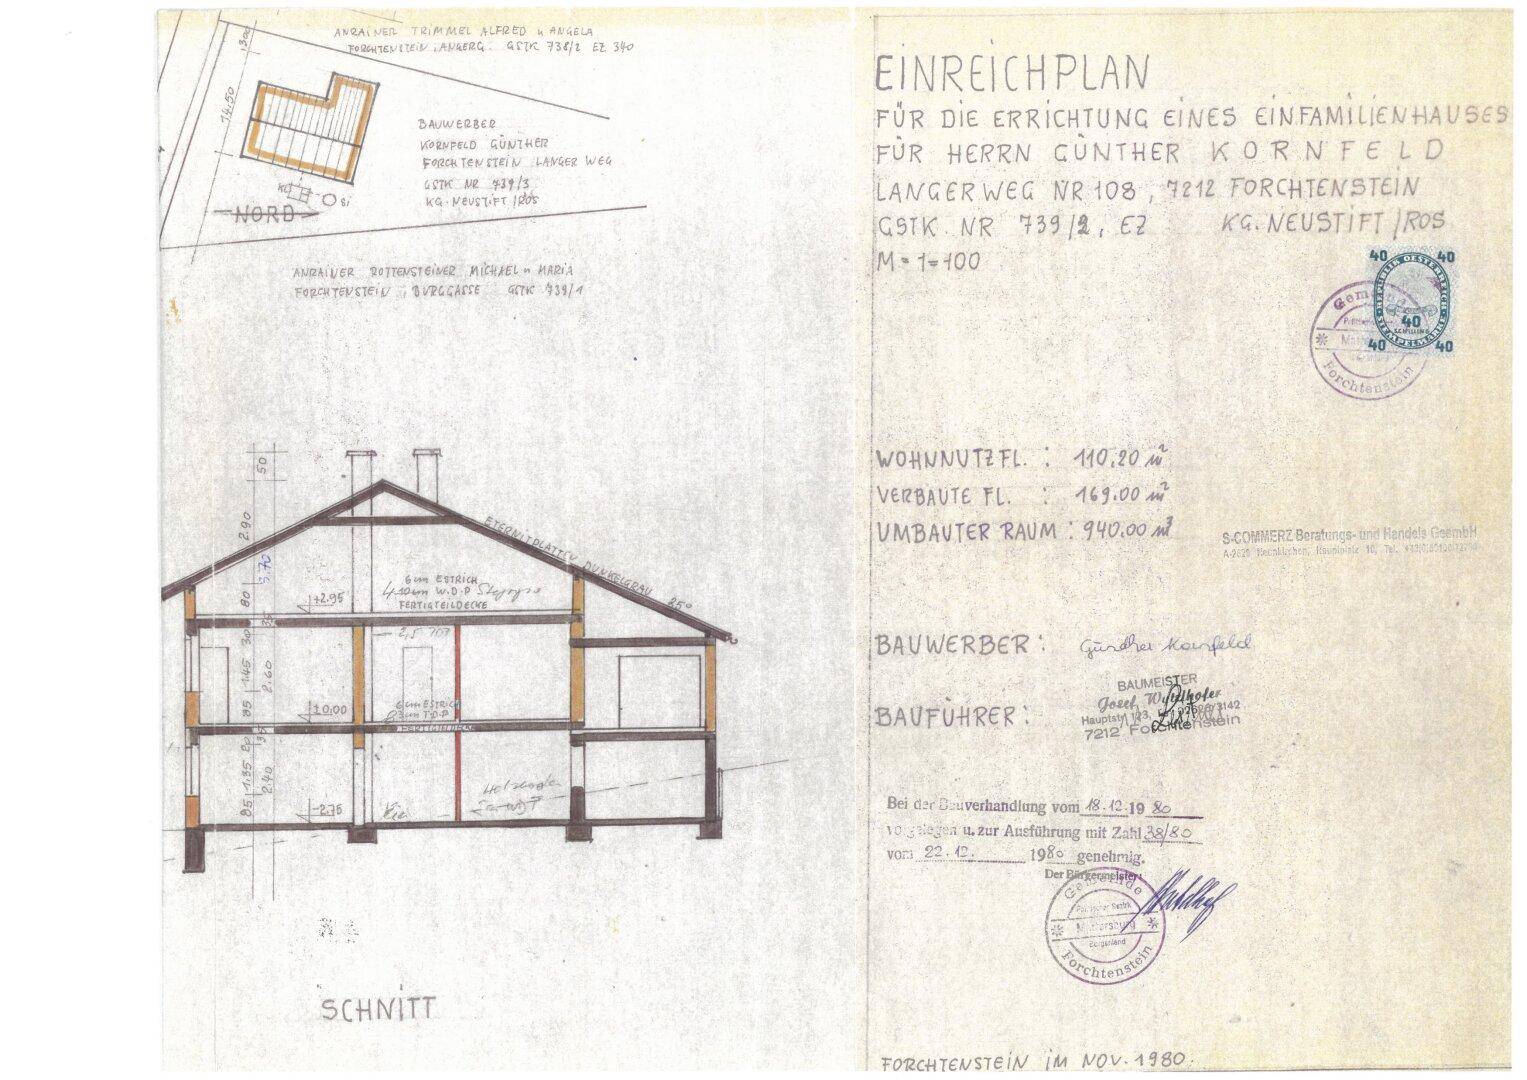 ANRAINER TRIMMEL ALFRED u ANGELA
FORCHTENSTEIN, ANGERG. GSTK 738/2 EZ 340
3.00
14.50
BAUWERBER
KORNFELD GÜNTHER
FORCHTENSTEIN LANGER WEG
GSTK NR 739/3
KG. NEUSTIFT/ROS
KG
Si
NORD
ANRAINER ROTTENSTEINER MICHAEL u MARIA
FORCHTENSTEIN, BURGGASSE GSTK 739/1
50
2.90
5.70
80
30
35
1.45
2.60
85
20
1.35
2.40
85
ETERNITPLATTEN DUNKELGRAU 25°
6cm ESTRICH
10cm W.D.P
FERTIGTEILDECKE
+2.95
±0.00
6cm ESTRICH
3cm T.D.P
FERTIGTEILDECKE
-2.75
SCHNITT
EINREICHPLAN
FÜR DIE ERRICHTUNG EINES EINFAMILIENHAUSES
FÜR HERRN GÜNTHER KORNFELD
LANGER WEG NR 108, 7212 FORCHTENSTEIN
GSTK. NR 739/2, EZ KG. NEUSTIFT/ROS
M = 1=100
40 40
REPUBLIK OESTERREICH
40
SCHILLING
STEMPELMARKE
40 40
Forchtenstein
WOHNNUTZFL. : 110.20 m²
VERBAUTE FL. : 169.00 m²
UMBAUTER RAUM : 940.00 m³
S-COMMERZ Beratungs- und Handels GesmbH
BAUWERBER: Günther Kornfeld
BAUFÜHRER:
BAUMEISTER
Josef
7212 Forchtenstein
Bei der Bauverhandlung vom 18.12.1980
vorgelegen u. zur Ausführung mit Zahl 38/80
vom 22.12. 1980 genehmig.
Der Bürgermeister:
Gemeinde
Politischer Bezirk
Mattersburg
Burgenland
Forchtenstein
FORCHTENSTEIN IM NOV. 1980.